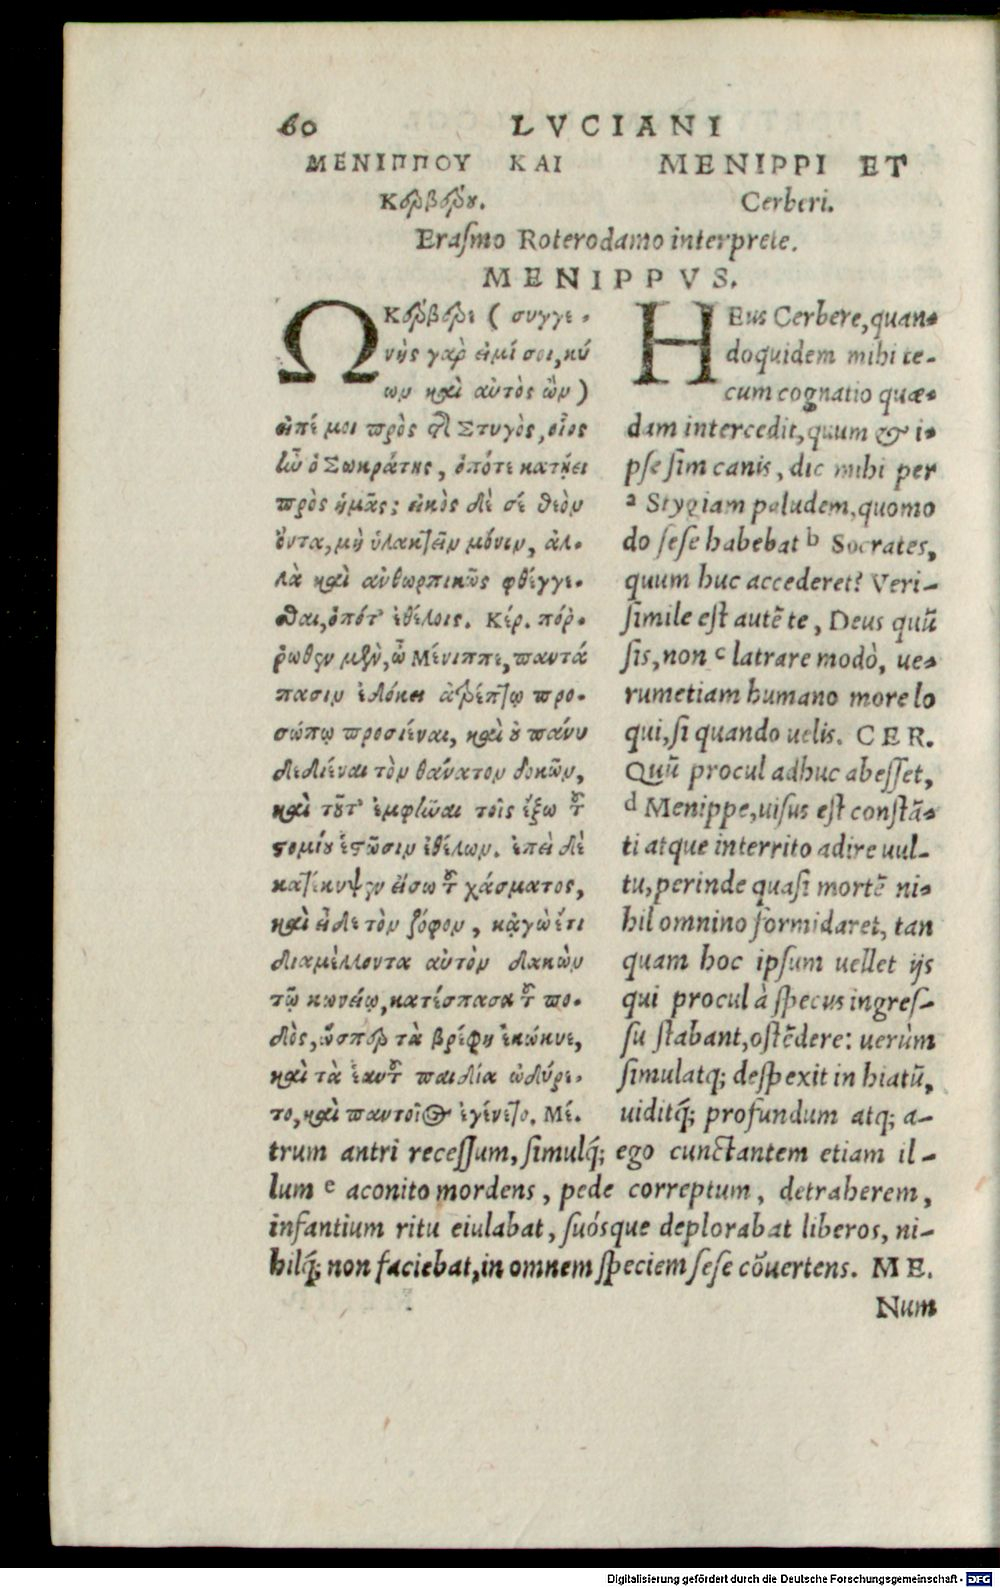 60 LVCIANI
ΜΕΝΙΠΠΟΥ ΚΑΙ
Κερβέρου.
MENIPPI ET
Cerberi.
Erasmo Roterodamo interprete.
MENIPPVS.
Ω Κέρβερε ( συγγε-
νὴς γαρ εἰμί σοι, κύ
ων καὶ αὐτὸς ὢν )
εἰπέ μοι πρὸς τῆς Στυγὸς, οἷος
ἦν ὁ Σωκράτης, ὁπότε κατῄει
πρὸς ἡμᾶς; εἰκὸς δὲ σὲ θεὸν
ὄντα, μὴ ὑλακτεῖν μόνον, ἀλ-
λὰ καὶ ἀνθωρπικῶς φθέγγε-
σθαι, ὁπότ' ἐθέλοις. Κέρ. πόρ-
ρωθεν μὲν, ὦ Μένιππε, παντά
πασιν ἐδόκει ἀτρέπτῳ προ-
σώπῳ προσιέναι, καὶ οὐ πάνυ
δεδιέναι τὸν θάνατον δοκῶν,
καὶ τοῦτ' ἐμφῆναι τοῖς ἔξω τοῦ
στομίου ἑστῶσιν ἐθέλων. ἐπεὶ δὲ
κατέκυψεν εἴσω τοῦ χάσματος,
καὶ εἶδε τὸν ζόφον, κᾀγὼ ἔτι
διαμέλλοντα αὐτὸν δακὼν
τῷ κωνείῳ, κατέσπασα τοῦ πο-
δὸς, ὥσπερ τὰ βρέφη ἐκώκυε,
καὶ τὰ ἑαυτοῦ παιδία ὠδύρε-
το, καὶ παντοῖος ἐγένετο. Μέ.
HEus Cerbere, quan-
doquidem mihi te-
cum cognatio quæ-
dam intercedit, quum & i-
pse sim canis, dic mihi per
a Stygiam paludem, quomo
do sese habebat b Socrates,
quum huc accederet? Veri-
simile est autẽ te, Deus quũ
sis, non c latrare modò, ue-
rumetiam humano more lo
qui, si quando uelis. CER.
Quũ procul adhuc abesset,
d Menippe, uisus est constã-
ti atque interrito adire uul-
tu, perinde quasi mortẽ ni-
hil omnino formidaret, tan
quam hoc ipsum uellet ijs
qui procul à specus ingres-
su stabant, ostẽdere: uerùm
simulatq; despexit in hiatũ,
uiditq́; profundum atq; a-
trum antri recessum, simulq́; ego cunctantem etiam il-
lum e aconito mordens, pede correptum, detraherem,
infantium ritu eiulabat, suósque deplorabat liberos, ni-
hilq́; non faciebat, in omnem speciem sese cõuertens. ME.
Num
Digitalisierung gefördert durch die Deutsche Forschungsgemeinschaft - DFG